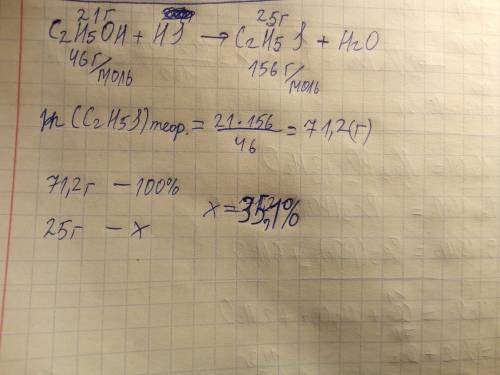 21г 25г
C₂H₅OH + HJ → C₂H₅J + H₂O
46г/моль 156г/моль
m(C₂H₅J)теор. = 21·156/46 = 71,2(г)
71,2г – 100%
25г – x x = 35,1%